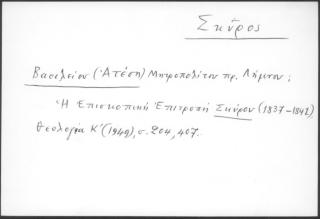 Σκῦρος
Βασιλείου (Ἀτέση) Μητροπολίτου πρ. Λήμνου:
Ἡ Ἐπισκοπικὴ Ἐπιτροπὴ Σκύρου (1837-1841),
Θεολογία Κ' (1949), σ. 204, 407.